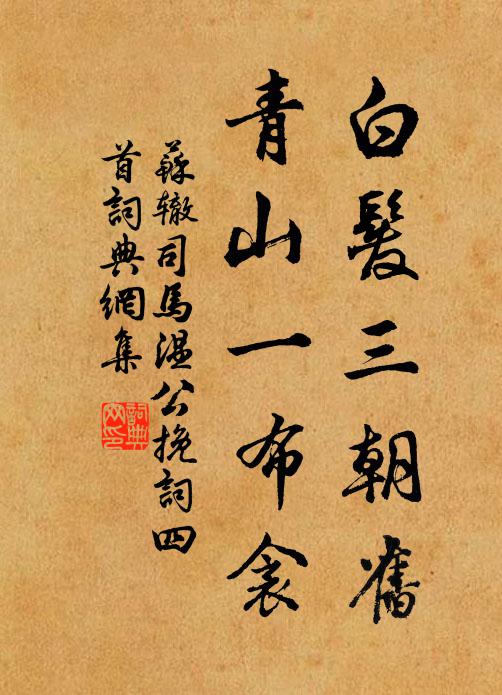 白髮三朝舊
青山一布衾
蘇轍司馬温公挽詞四
首詞典網集
詞典
网印